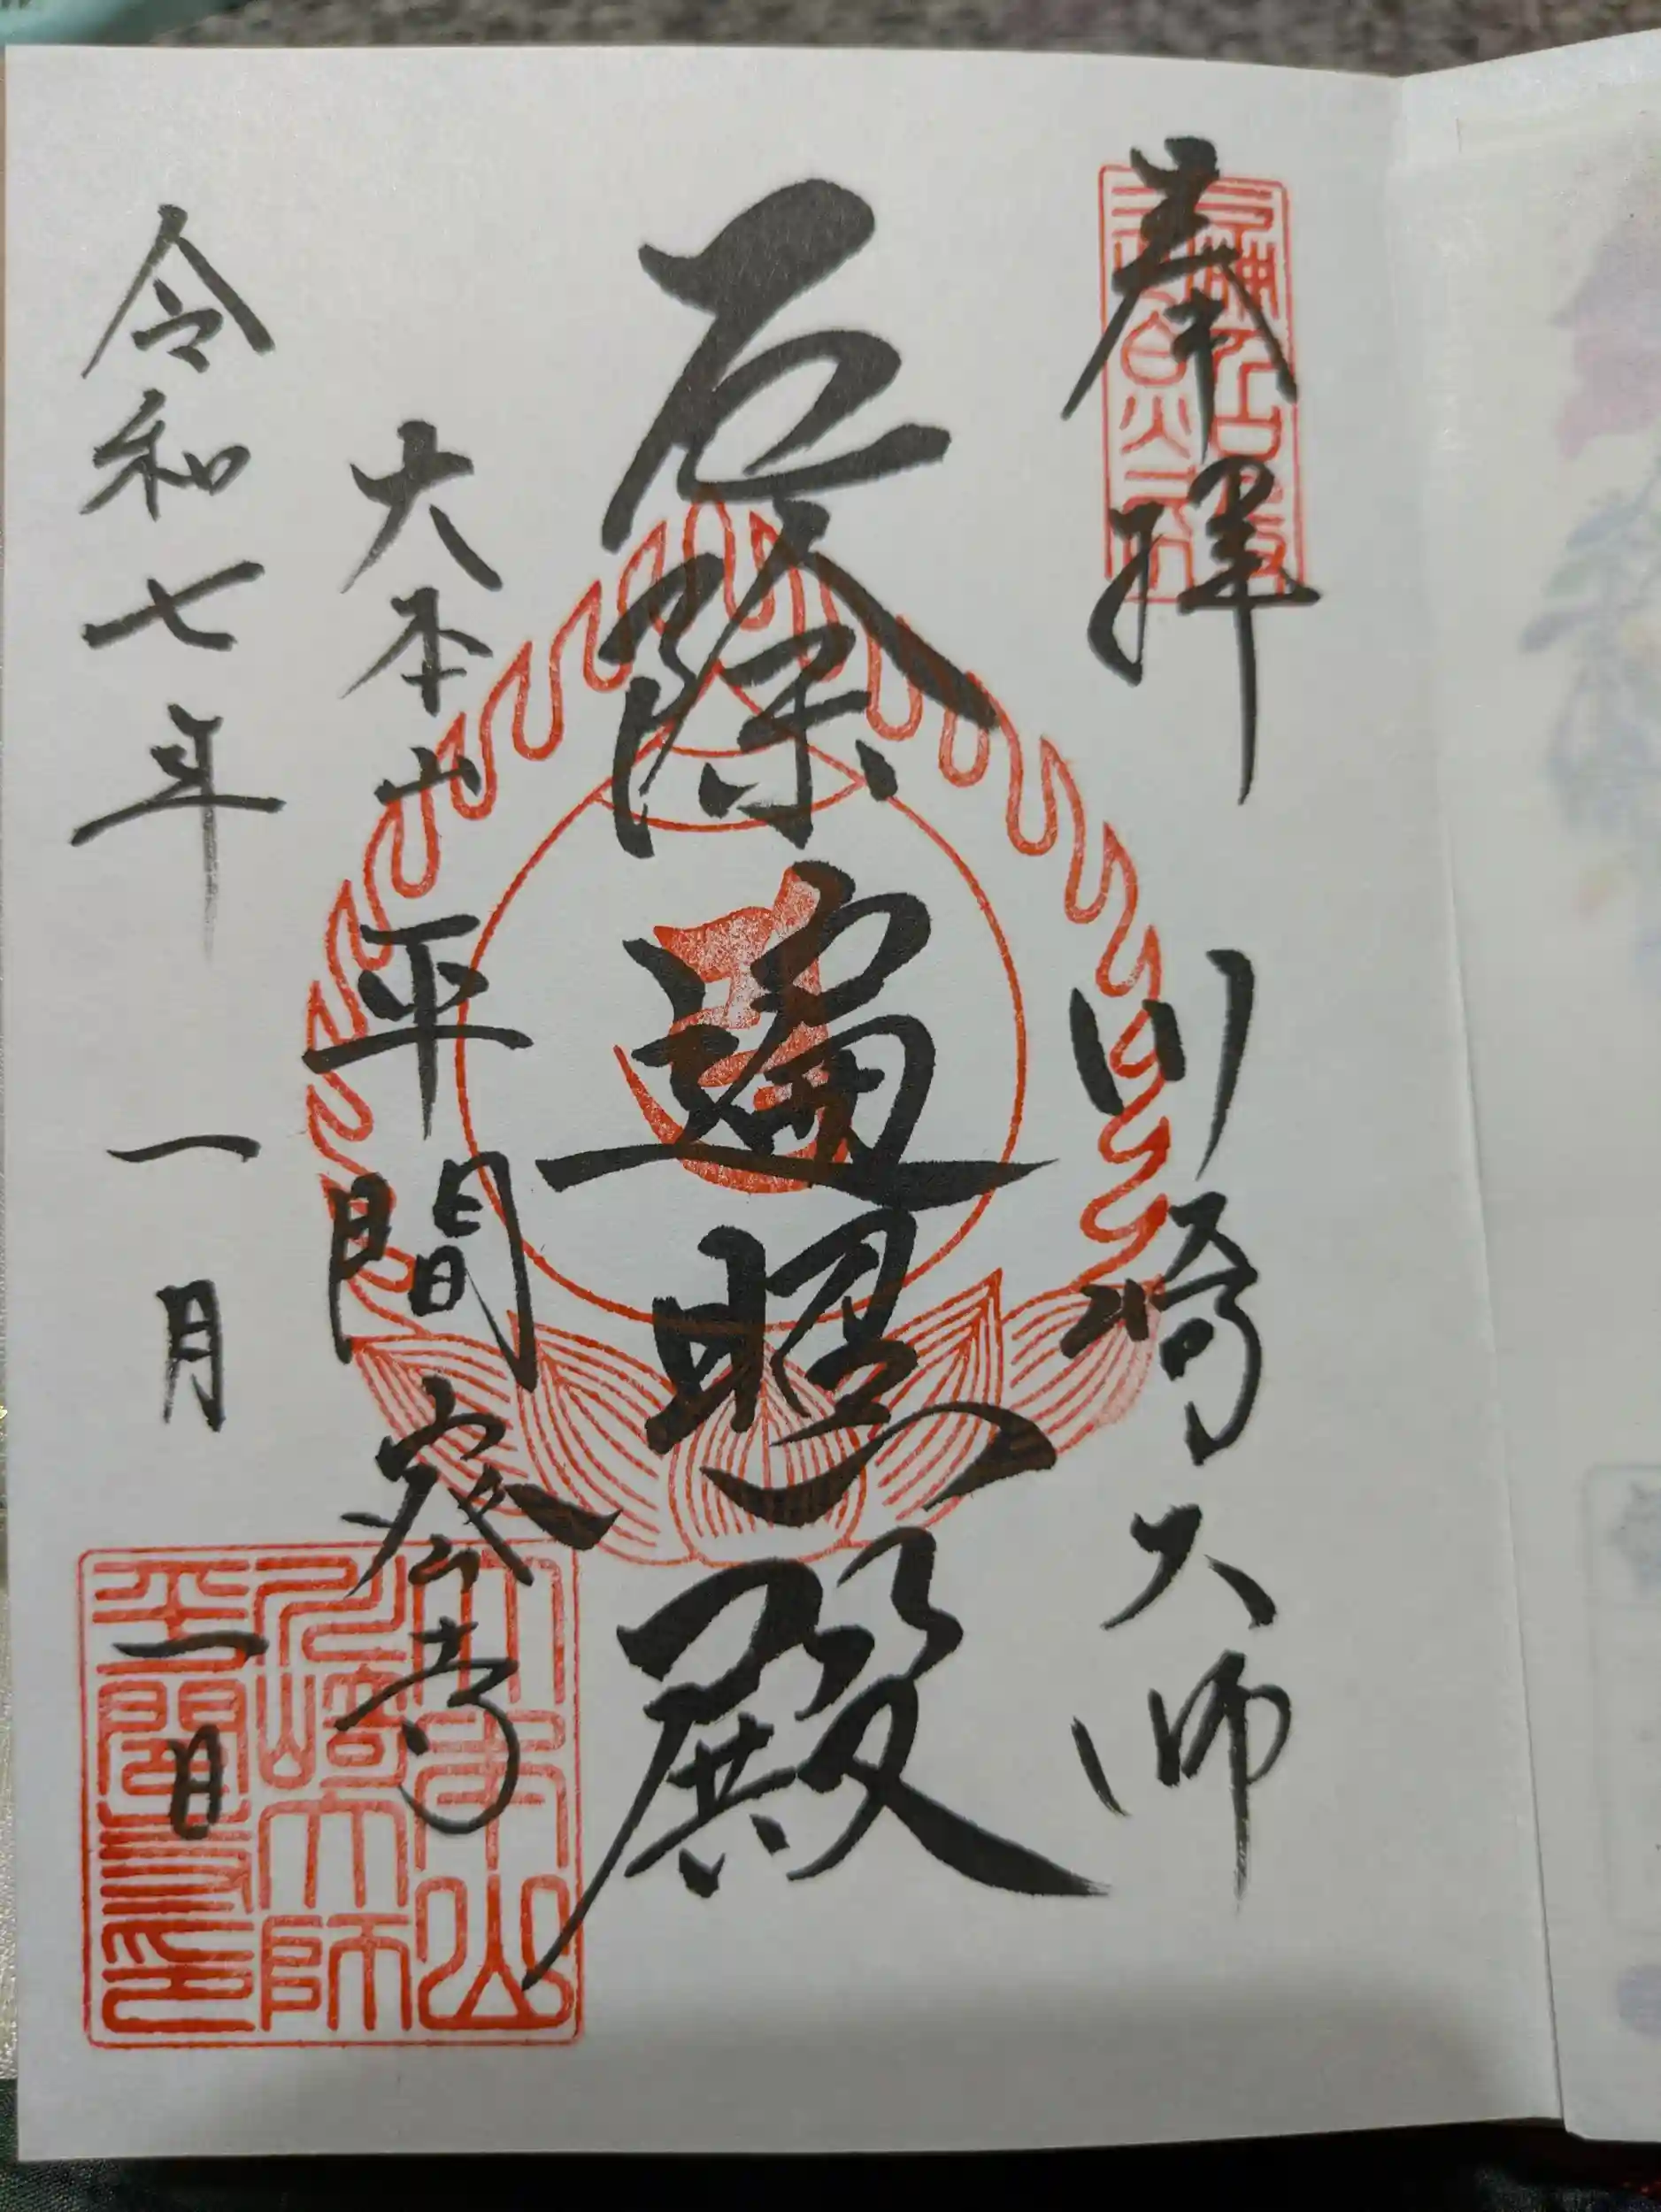 奉拝　川崎大師
厄除遍照殿
大本山　平間密寺
令和七年　一月　一日
大本山
川崎大師
平間寺印